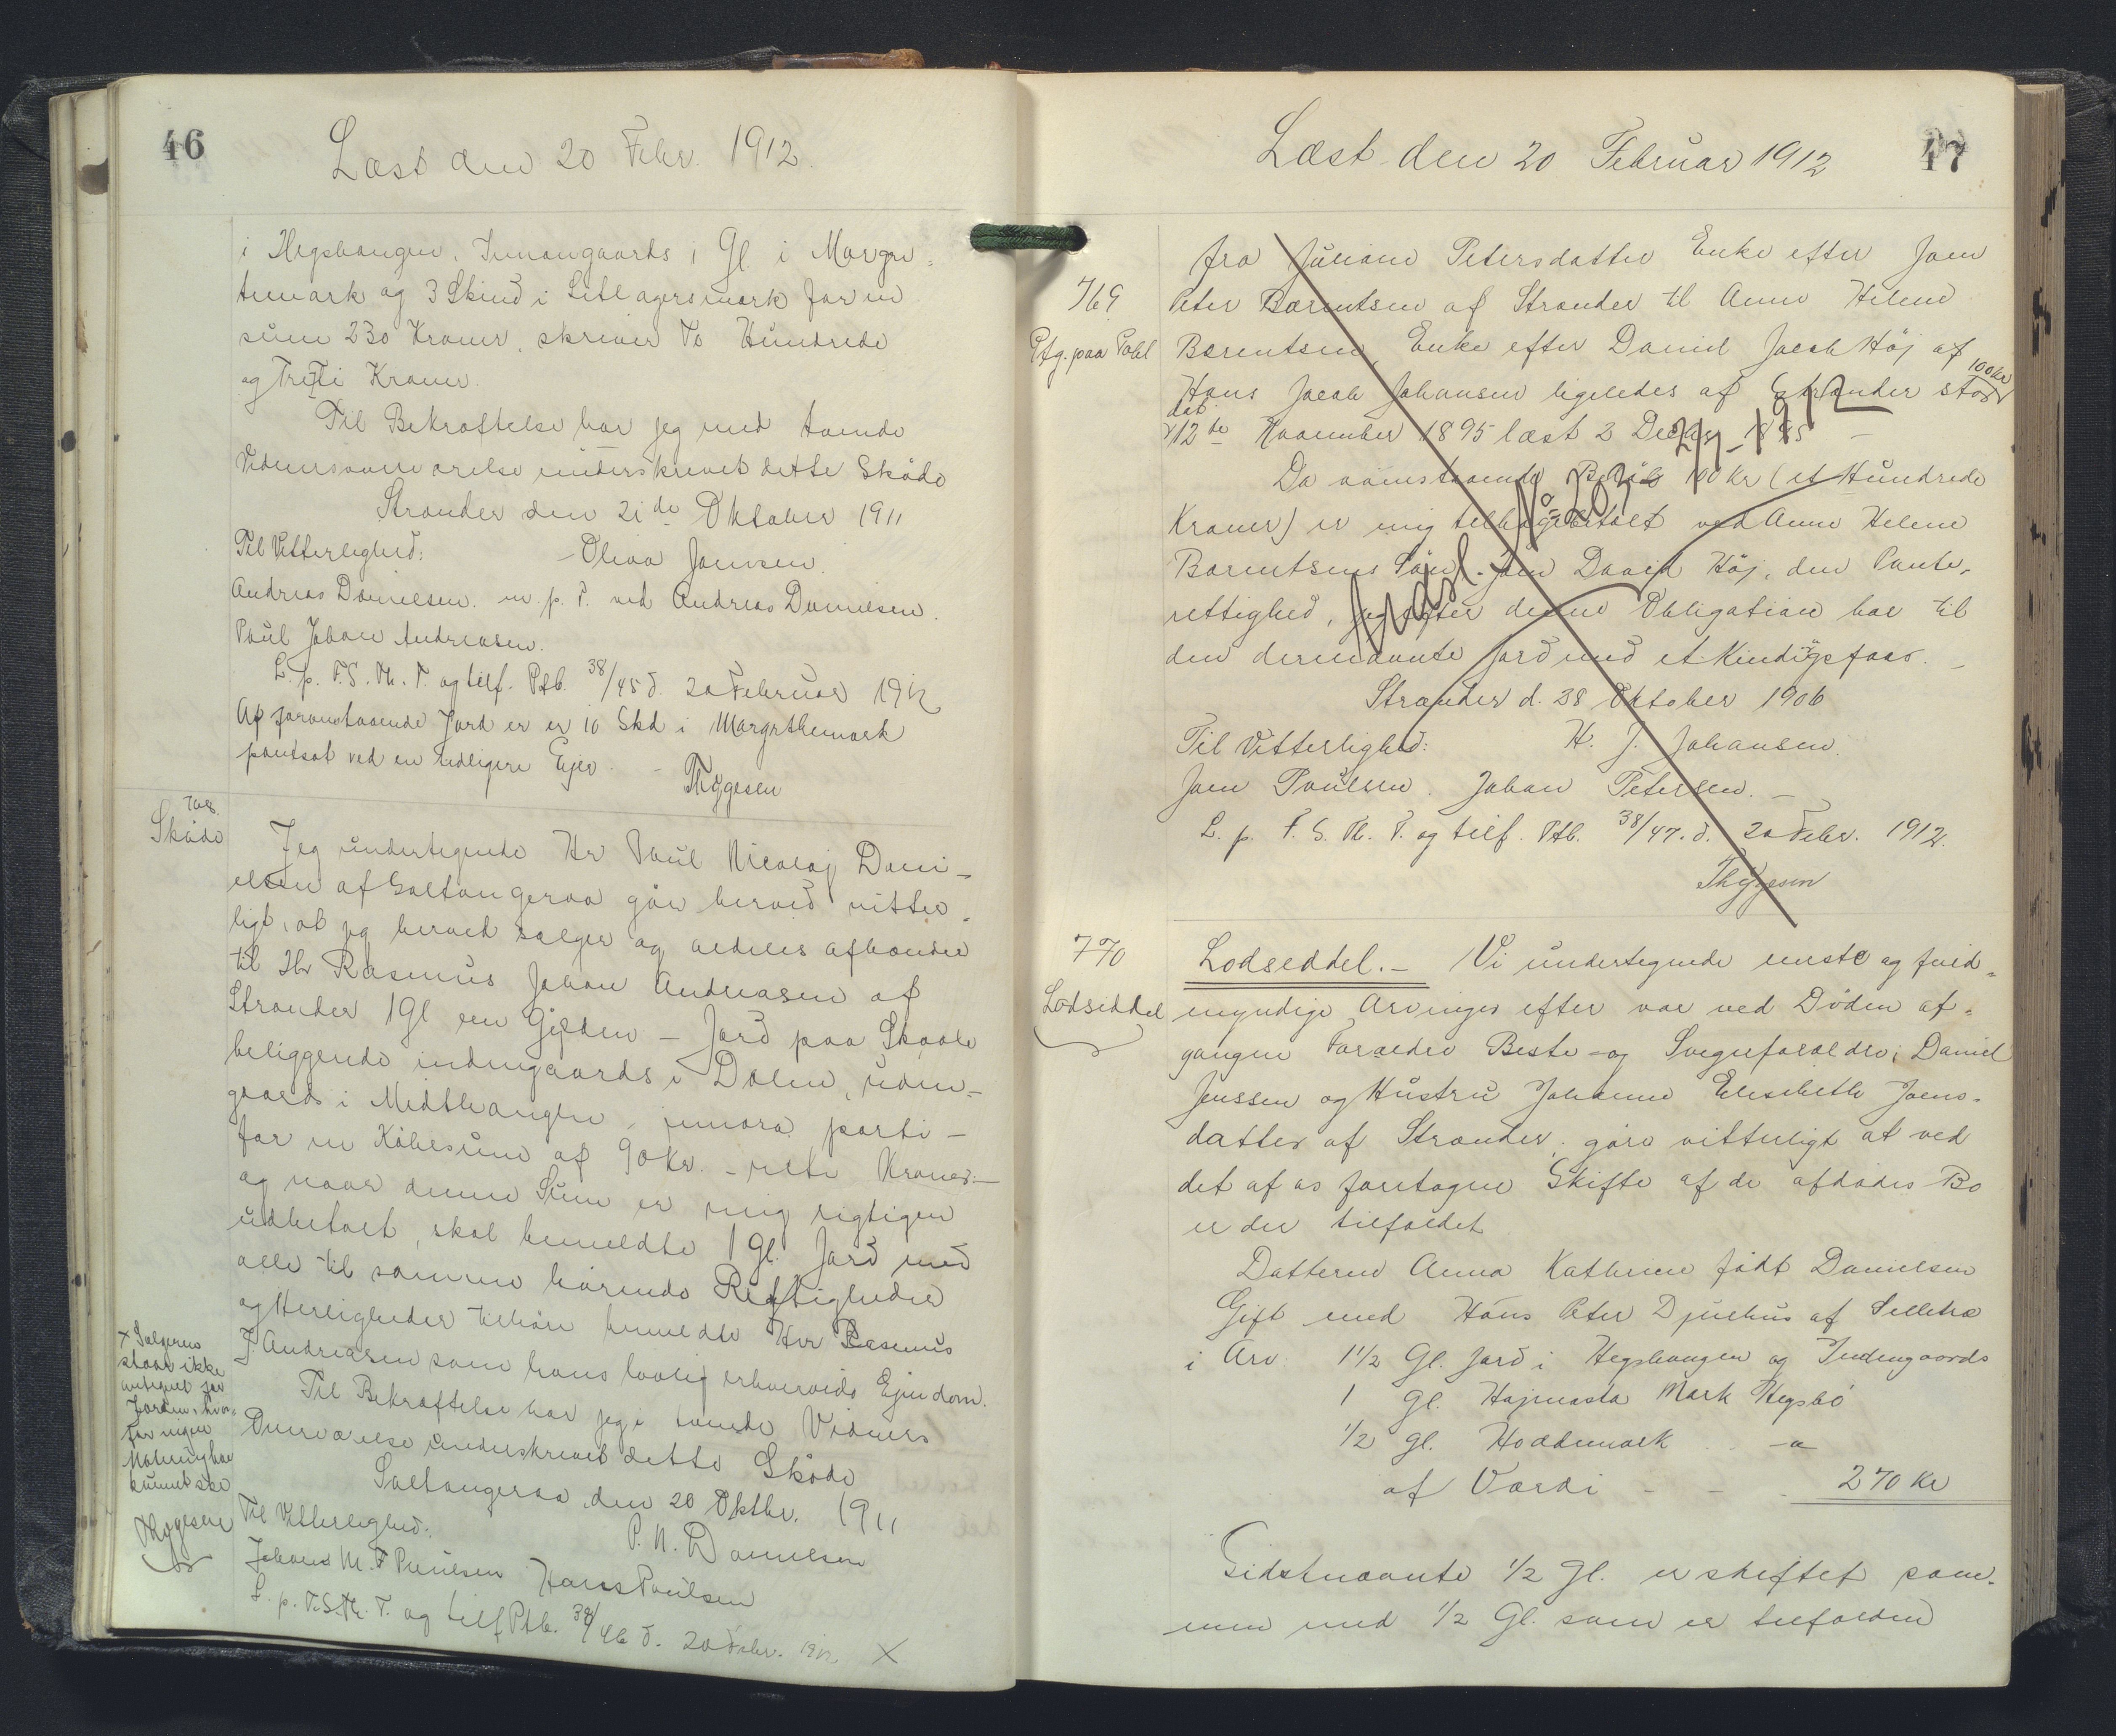 46
Læst den 20 Febr. 1912.
i Hegshaugen, Innangaards 1 Gl i Margre=
temark og 3 Skind i Litlagersmark for en
sum 230 Kroner, skriver To Hundrede
og Treti Kroner.
Til Bekræftelse har jeg med tvende
Vidners nærværelse underskrevet dette Skøde
Strender den 21de Oktober 1911
Til Vitterlighed: Oliva Joensen.
Andreas Danielsen. m. p. P. ved Andreas Danielsen.
Poul Johan Andreasen.
L. p. F. S. Th. P. og tilf. Ptb. 38/45 d. 20 Februar 1912
Af foranstaaende Jord er er 10 Skd i Margrethemark
pantsat ved en tidligere Ejer. –
Thygesen
768
Skøde
Jeg undertegnede Hr Poul Nicolaj Dani-
elsen af Saltangeraa gør herved vitter=
ligt, at jeg herved sælger og aldeles afhænder
til Hr Rasmus Johan Andreasen af
Strender 1 Gl een Gylden – Jord paa Skaale
beliggende indengaards i Dalen, uden-
gaards i Midthaugen, innara parti –
for en Købesum af 90 Kr. – niti Kroner. –
og naar denne Sum er mig rigtigen
udbetalt, skal bemeldte 1 Gl. Jord med
alle til samme hørende Rettigheder
og Herligheder tilhøre bemeldte Herr Rasmus
J. Andreasen som hans lovlig erhvervede Ejendom.
Til Bekræftelse har jeg i tvende Vidners
Overværelse underskrevet dette Skøde
Saltangeraa den 20 Oktbr. 1911
Til Vitterlighed: P. N. Danielsen
Johans M. F Poulsen Hans Poulsen
L. p. F. S. Th. P. og tilf Ptb. 38/46 d. 20 Febr. 1912 X
X Sælgeren
staar ikke
antegnet for
Jorden, hvor=
for ingen
Notering har
kunnet ske
Thygesen
Læst den 20 Februar 1912
47
769
Ptg. paa Pobl
fra Juliane Petersdatter Enke efter Joen
Peter Bærentsen af Strender til Anne Helene
Bærentsen, Enke efter Daniel Jacob Høj af
100 Kr
Hans Jacob Johansen ligeledes af Strender stor
dat
12de November 1895 læst 2 Decbr 1895 –
Da ovenstaaende Beløb 100 Kr (et Hundrede
Kroner) er mig tilbagebetalt ved Anne Helene
Bærentsens Søn Joen David Høj, den Pante-
rettighed, jeg efter denne Obligation har til
den dernævnte Jord med et Kindigsfaar. –
Strender d. 28 Oktober 1906
Til Vitterlighed: H. J. Johansen.
Joen Poulsen. Johan Petersen. –
L. p. F. S. Th. P. og tilf. Ptb. 38/47. d. 20 Febr. 1912.
Thygesen
770
Lodseddel
Lodseddel. – Vi undertegnede eneste og fuld=
myndige Arvinger efter vor ved Døden af=
gangne Forældre Beste- og Svigerforældre; Daniel
Jenssen og Hustru Johanne Elisabeth Joens-
datter af Strender; gøre vitterligt at ved
det af os foretagne Skifte af de afdødes Bo
er der tilfaldet
Datteren Anna Kathrine født Danielsen
Gift med Hans Peter Djurhus af Selletræ
i Arv. 1 1/2 Gl. Jord i Hegshaugen og Indengaards
1 Gl. Hajmasta Mark Hegsbø
1/2 Gl. Hoddemark – a –
af Værdi – – 270 Kr
Sidstnævnte 1/2 Gl. er skiftet sam-
men med 1/2 Gl. som er tilfalden